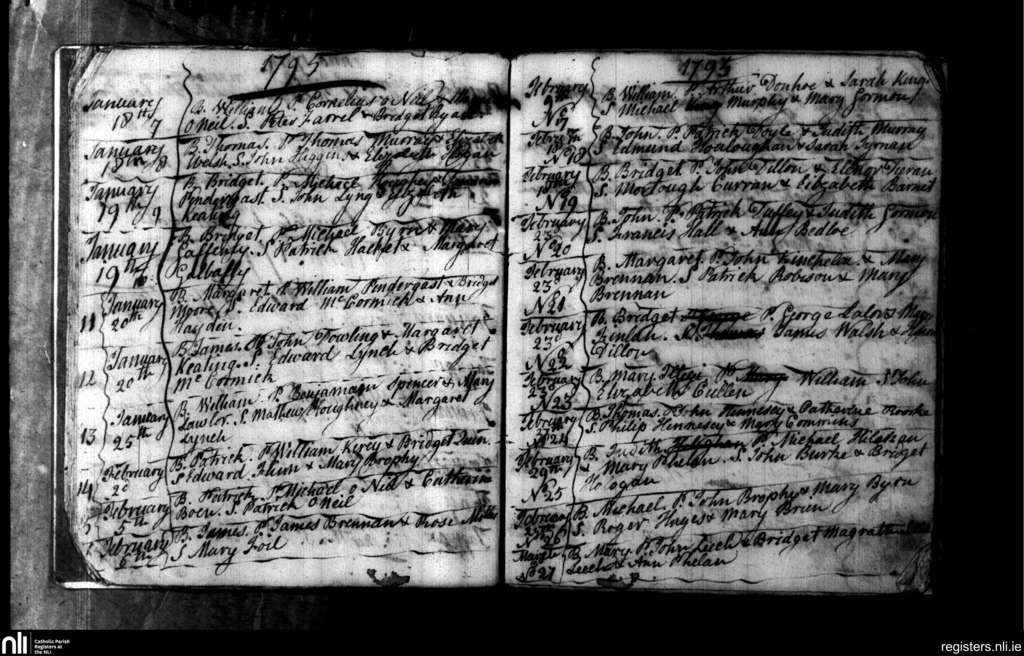 1795
January
18th 7
B. William P. Cornelius o Neil &
O'Neil. S. Peter Farrel & Bridget Ryan
January
18th 8
B. Thomas. P. Thomas Murray & Elizabeth
Welsh. S. John Higgins & Elizabeth Hogan
January
19th 9
B. Bridget. P. Michael
Pendergast. S. John Lyng
Keating
January
19th 10
B. Bridget. P. Michael Byrne & Mary
Lafferty. S Patrick Hacket & Margaret
January
11 20th
B. Margaret. P. William Pendergast & Bridget
Moore. S. Edward McCormick & Ann
Hayden.
January
12 20th
B. James. P. John Dowling & Margaret
Keating. S. Edward Lynch & Bridget
McCormick
January
13 25th
B. William. P. Benjamin Spencer & Mary
Lawlor. S. Mathew & Margaret
Lynch
February
14 2d
B. Patrick. P. William & Bridget Quin.
S Edward & Mary Brophy
February
5th
B. Patrick. P. Michael o Neil & Catharin
S. Patrick O Neil
February
6th
B. James. P. James Brennan & Rose
S. Mary Foil
1795
February
No 17
B. William. P. Arthur Donhoe & Sarah King.
S Michael Murphy & Mary Gormon
February
No 18
B. John. P. Patrick Doyle & Judith Murray
S Edmund & Sarah Tyrnan
February
No 19
B. Bridget. P. John Dillon & Elenor
S. Curran & Elizabeth Barnet
February
23d
No 20
B. John. P. Patrick Duffey & Judith Gormon
S. Francis Hall & Ann Bedloe
February
23d
No 21
B. Margaret. P. John & Mary
Brennan. S Patrick Robison & Mary
Brennan
February
23d
No 22
B. Bridget P. George Lalor & Mary
S. James Walsh &
Dillon
February
23d
No 23
B. Mary William S John
Elizabeth Cullen
February
No 24
B. Thomas. P. John Hennesey & Catherine Rourke
S. Philip Hennesey & Mary Commins
February
No 25
B. Judith P. Michael
& Mary Phelan. S. John Burke & Bridget
February
No 26
B. Michael. P. John Brophy & Mary Byrn
S. Roger Hayes & Mary Brien
March
No 27
B. Mary. P. John Leech & Bridget Magrath
Leech & Ann Phelan
nli Catholic Parish
Registers at
the NLI
registers.nli.ie